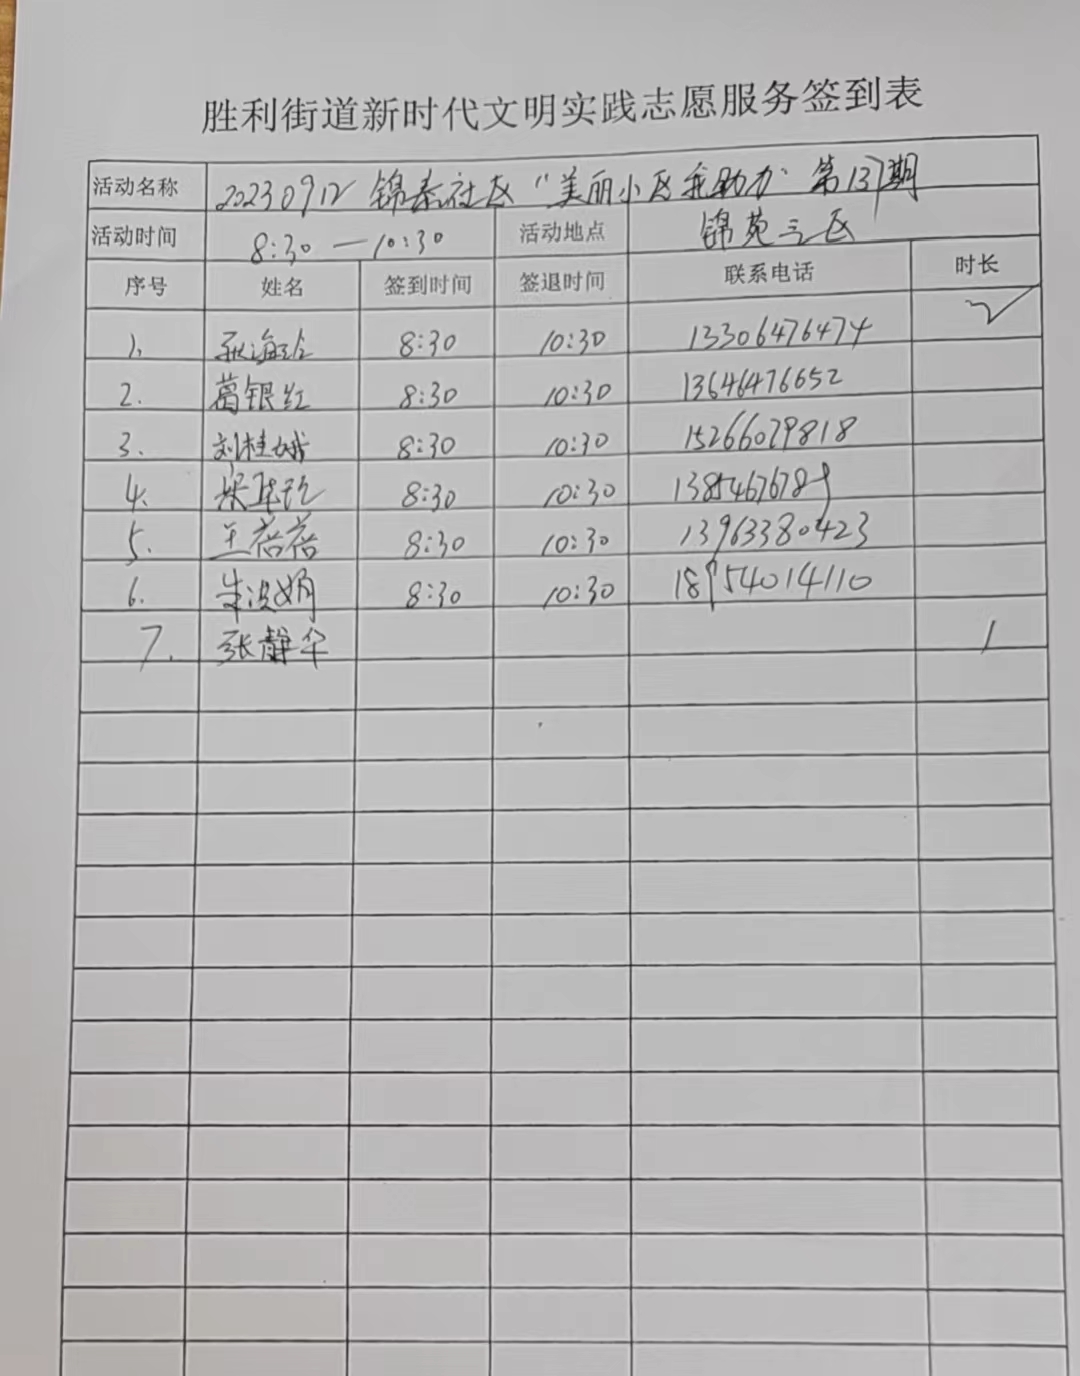 胜利街道新时代文明实践志愿服务签到表
活动名称 20230912 锦泰社区“美丽小区我助力”第137期
活动时间 8:30—10:30 活动地点 锦苑三区
序号 姓名 签到时间 签退时间 联系电话 时长
1. 8:30 10:30 13306476474 2
2. 葛银红 8:30 10:30 13646476652
3. 刘桂娥 8:30 10:30 15266079818
4. 8:30 10:30
5. 王蓓蓓 8:30 10:30 13963380423
6. 朱波娟 8:30 10:30 18954014110
7. 张静华 1